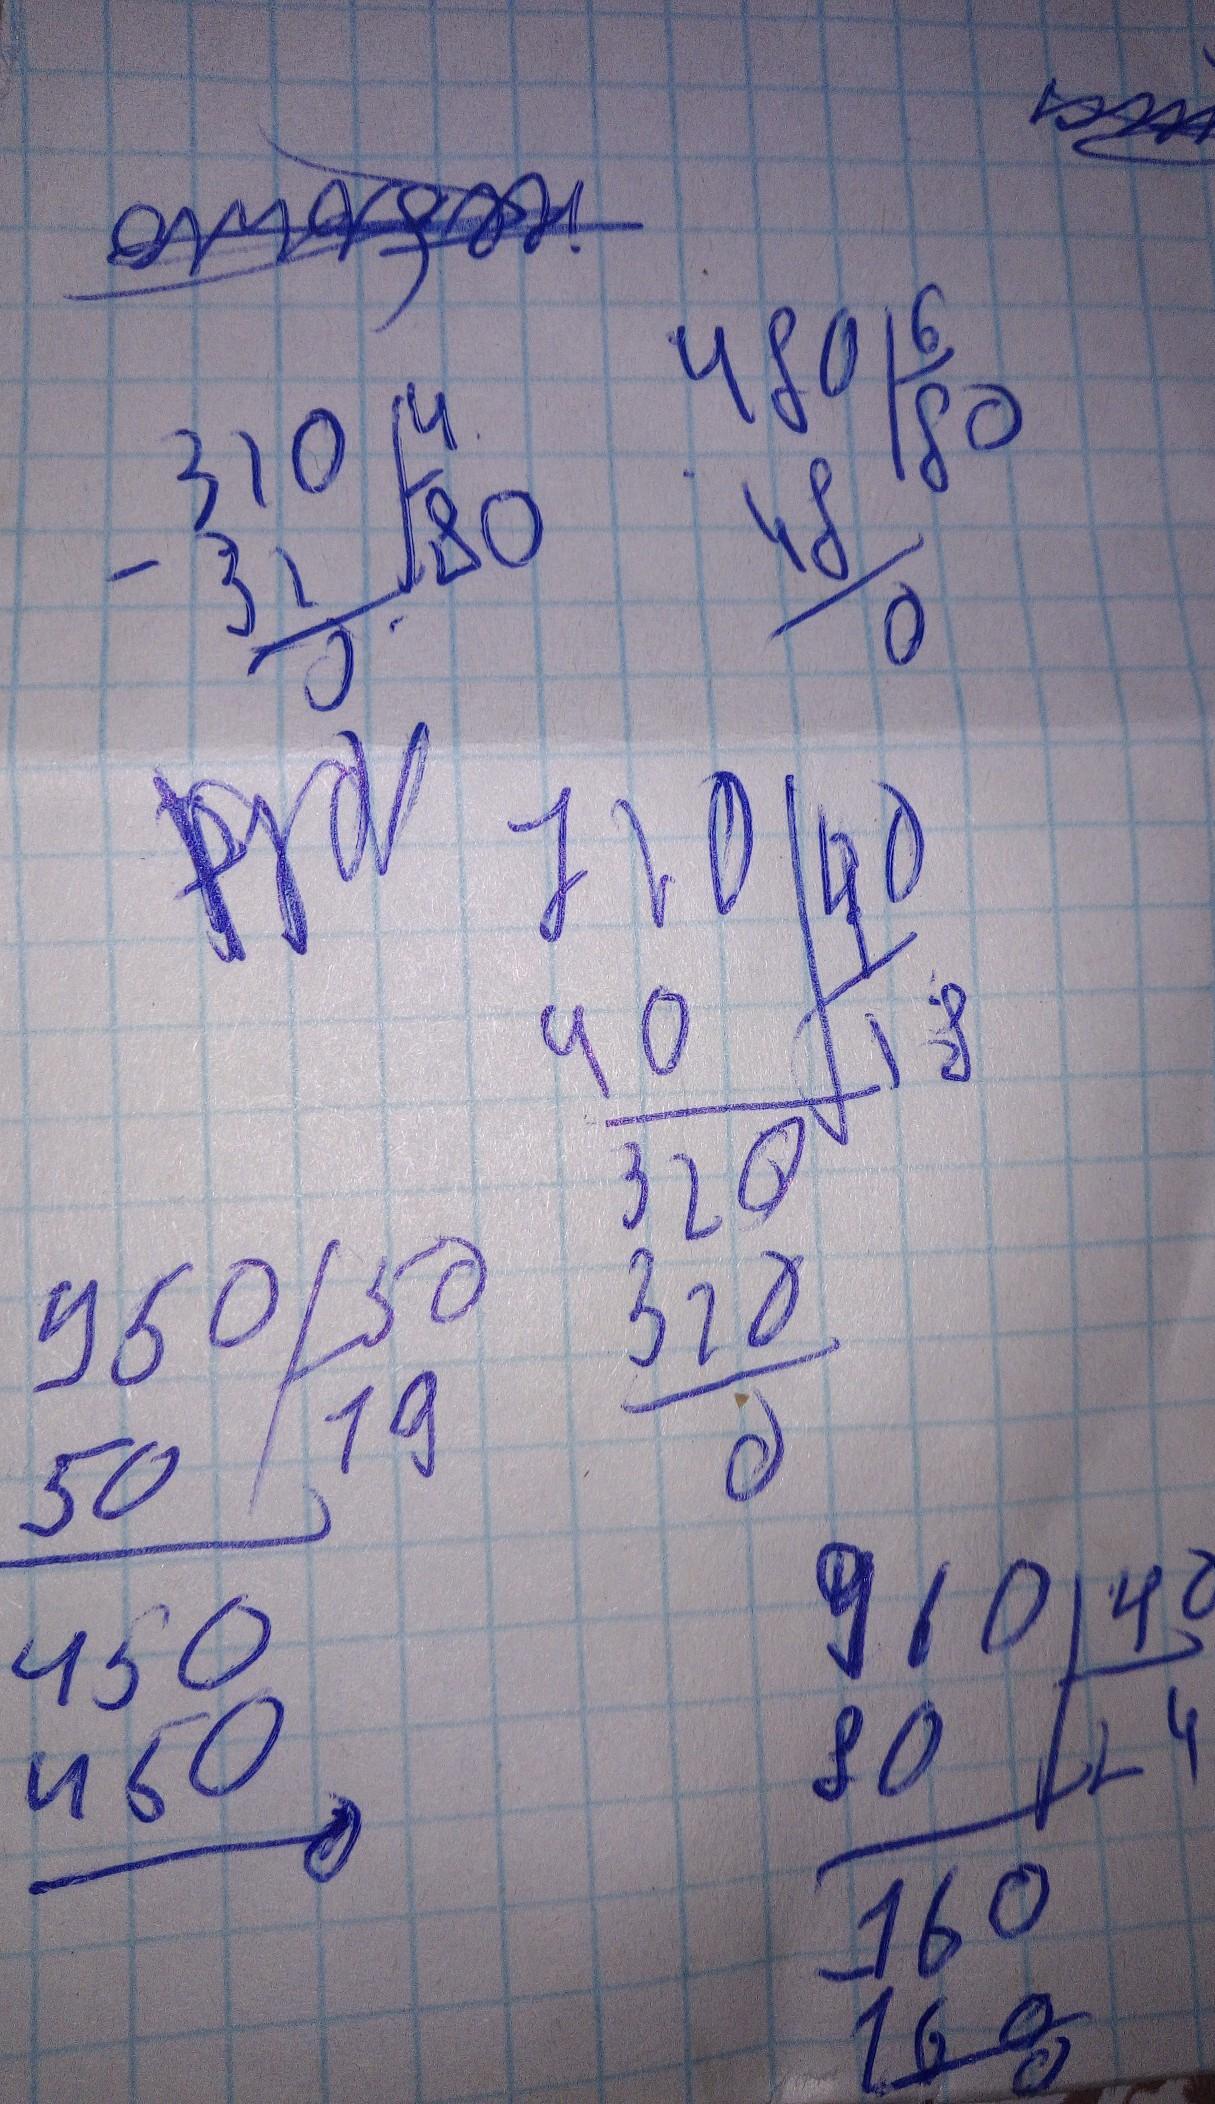 320 4
- 32 80
0
480 6
48 80
0
720 40
40 18
320
320
0
950 50
50 19
450
450
0
960 40
80 24
160
160
0